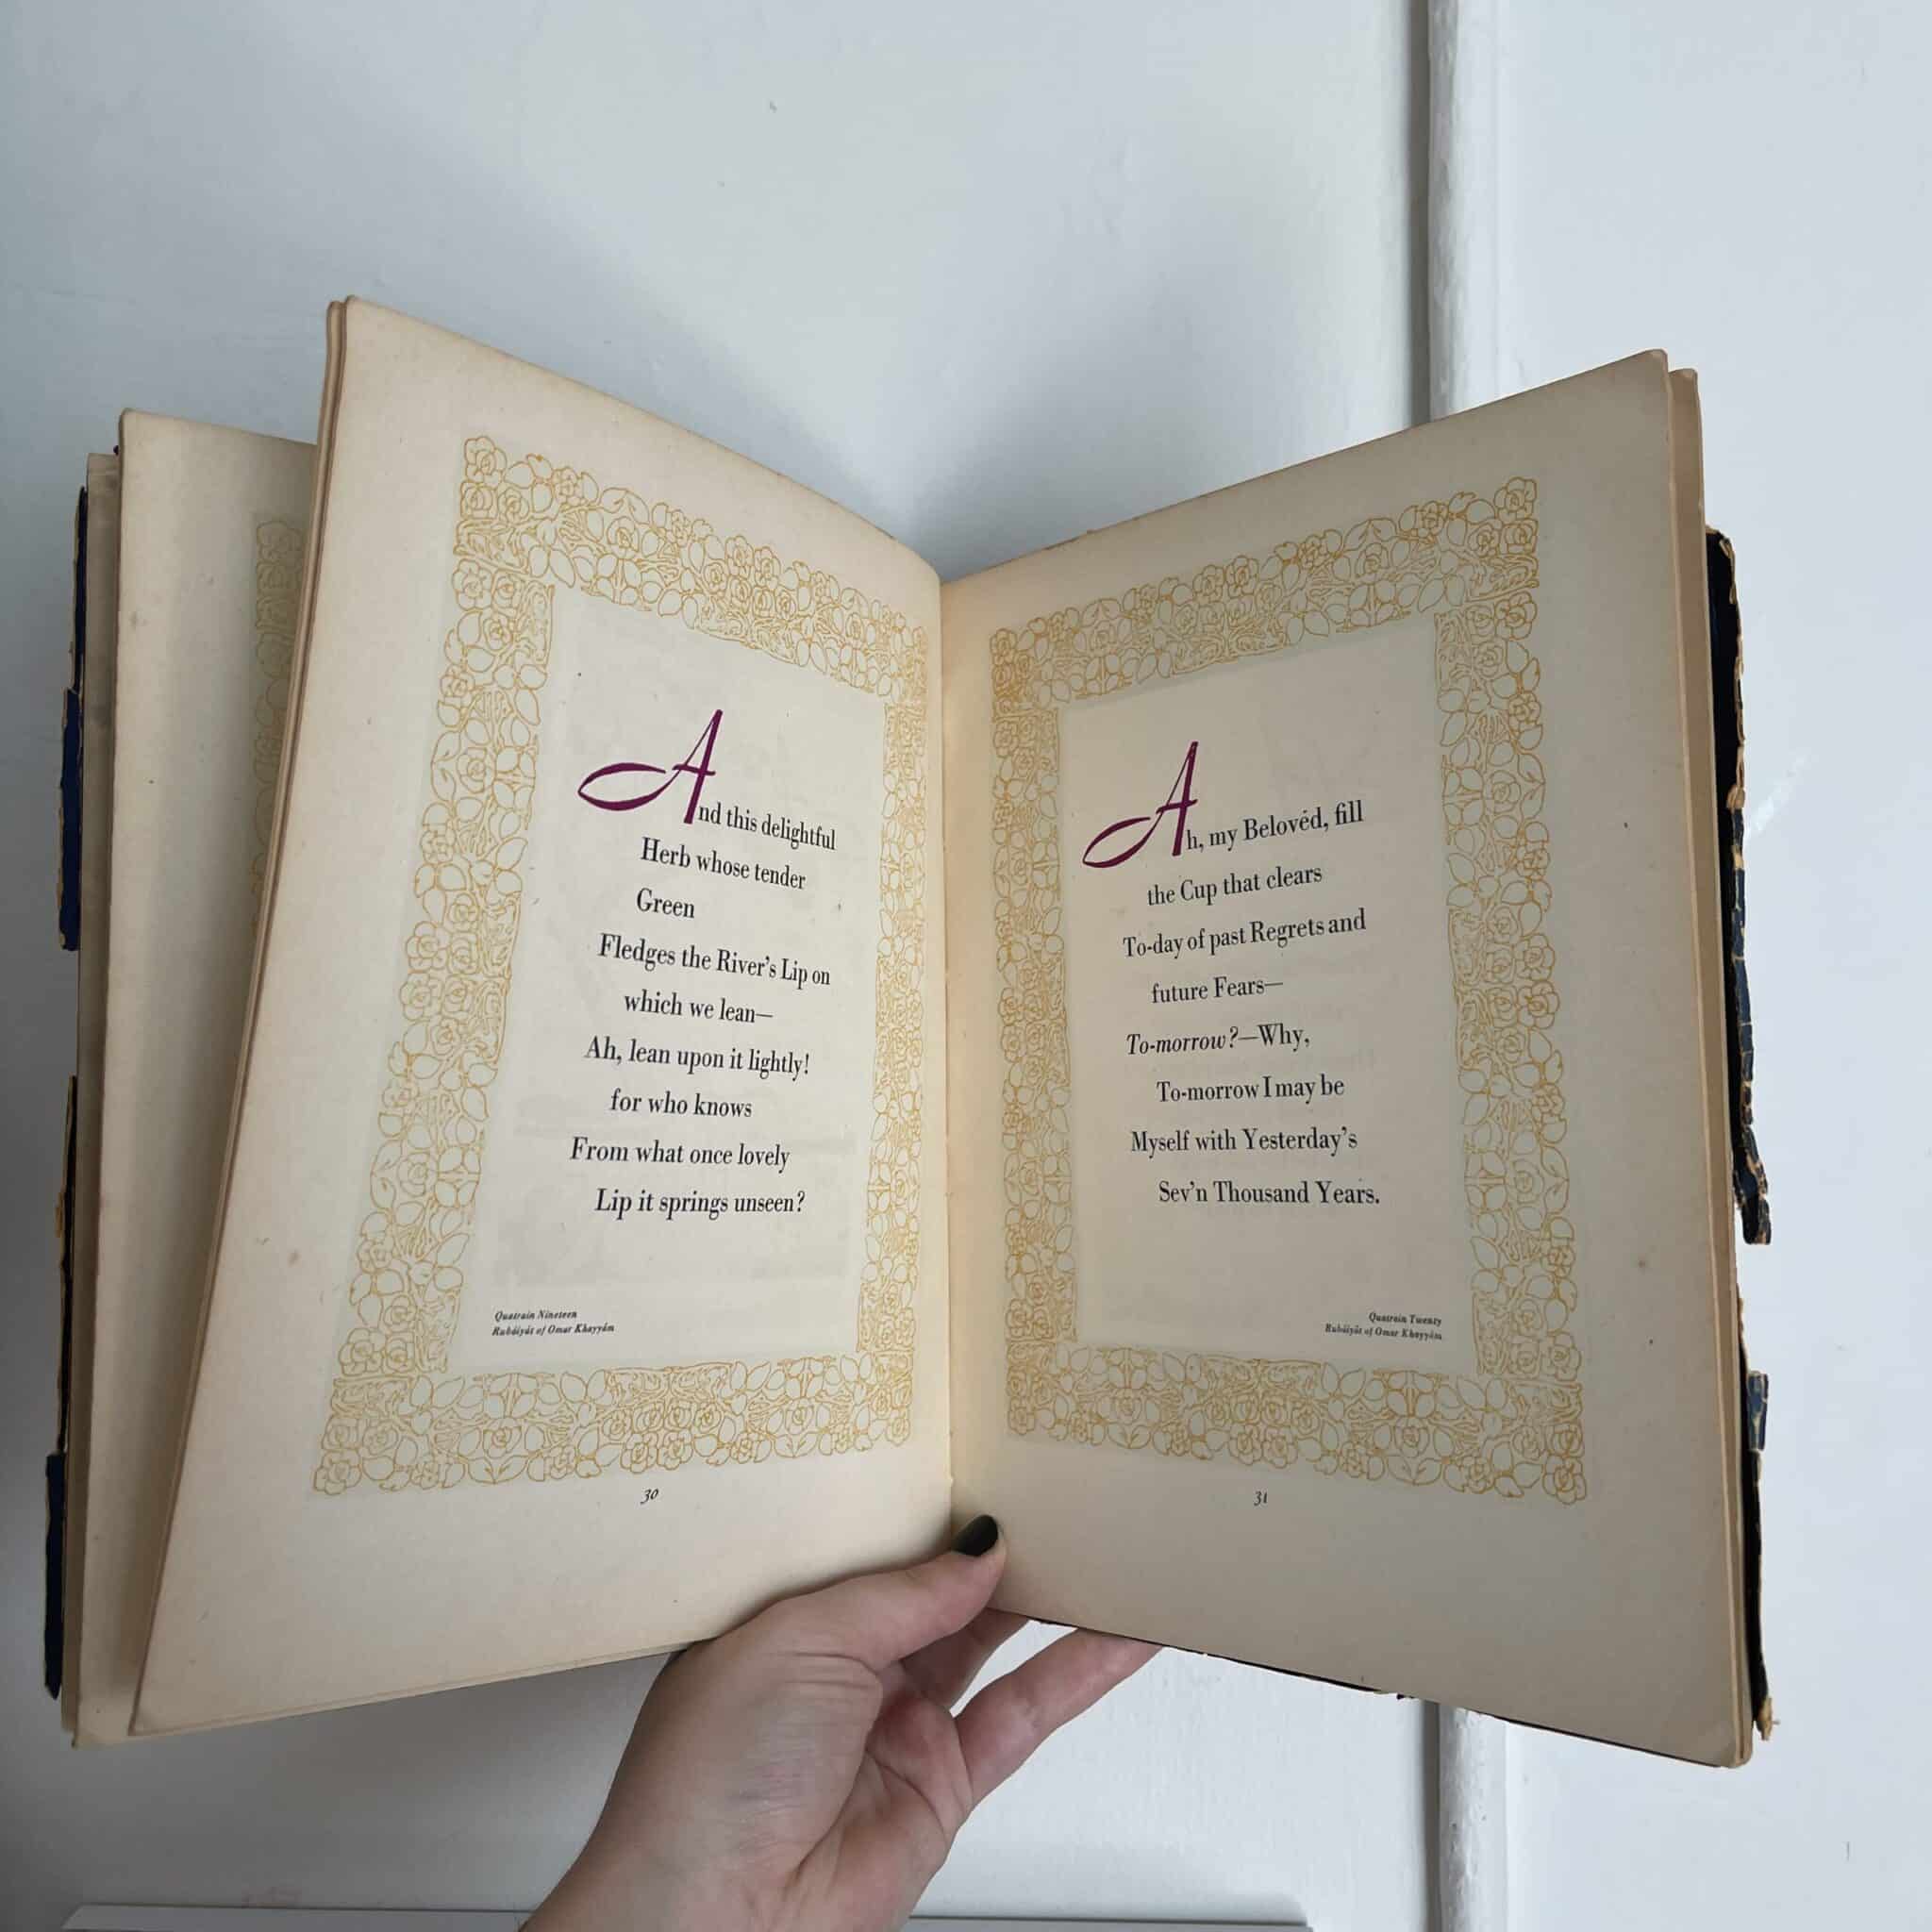 And this delightful
Herb whose tender
Green
Fledges the River's Lip on
which we lean—
Ah, lean upon it lightly!
for who knows
From what once lovely
Lip it springs unseen?
Quatrain Nineteen
Rubáiyát of Omar Khayyám
30
Ah, my Belovéd, fill
the Cup that clears
To-day of past Regrets and
future Fears—
To-morrow?—Why,
To-morrow I may be
Myself with Yesterday's
Sev'n Thousand Years.
Quatrain Twenty
Rubáiyát of Omar Khayyám
31